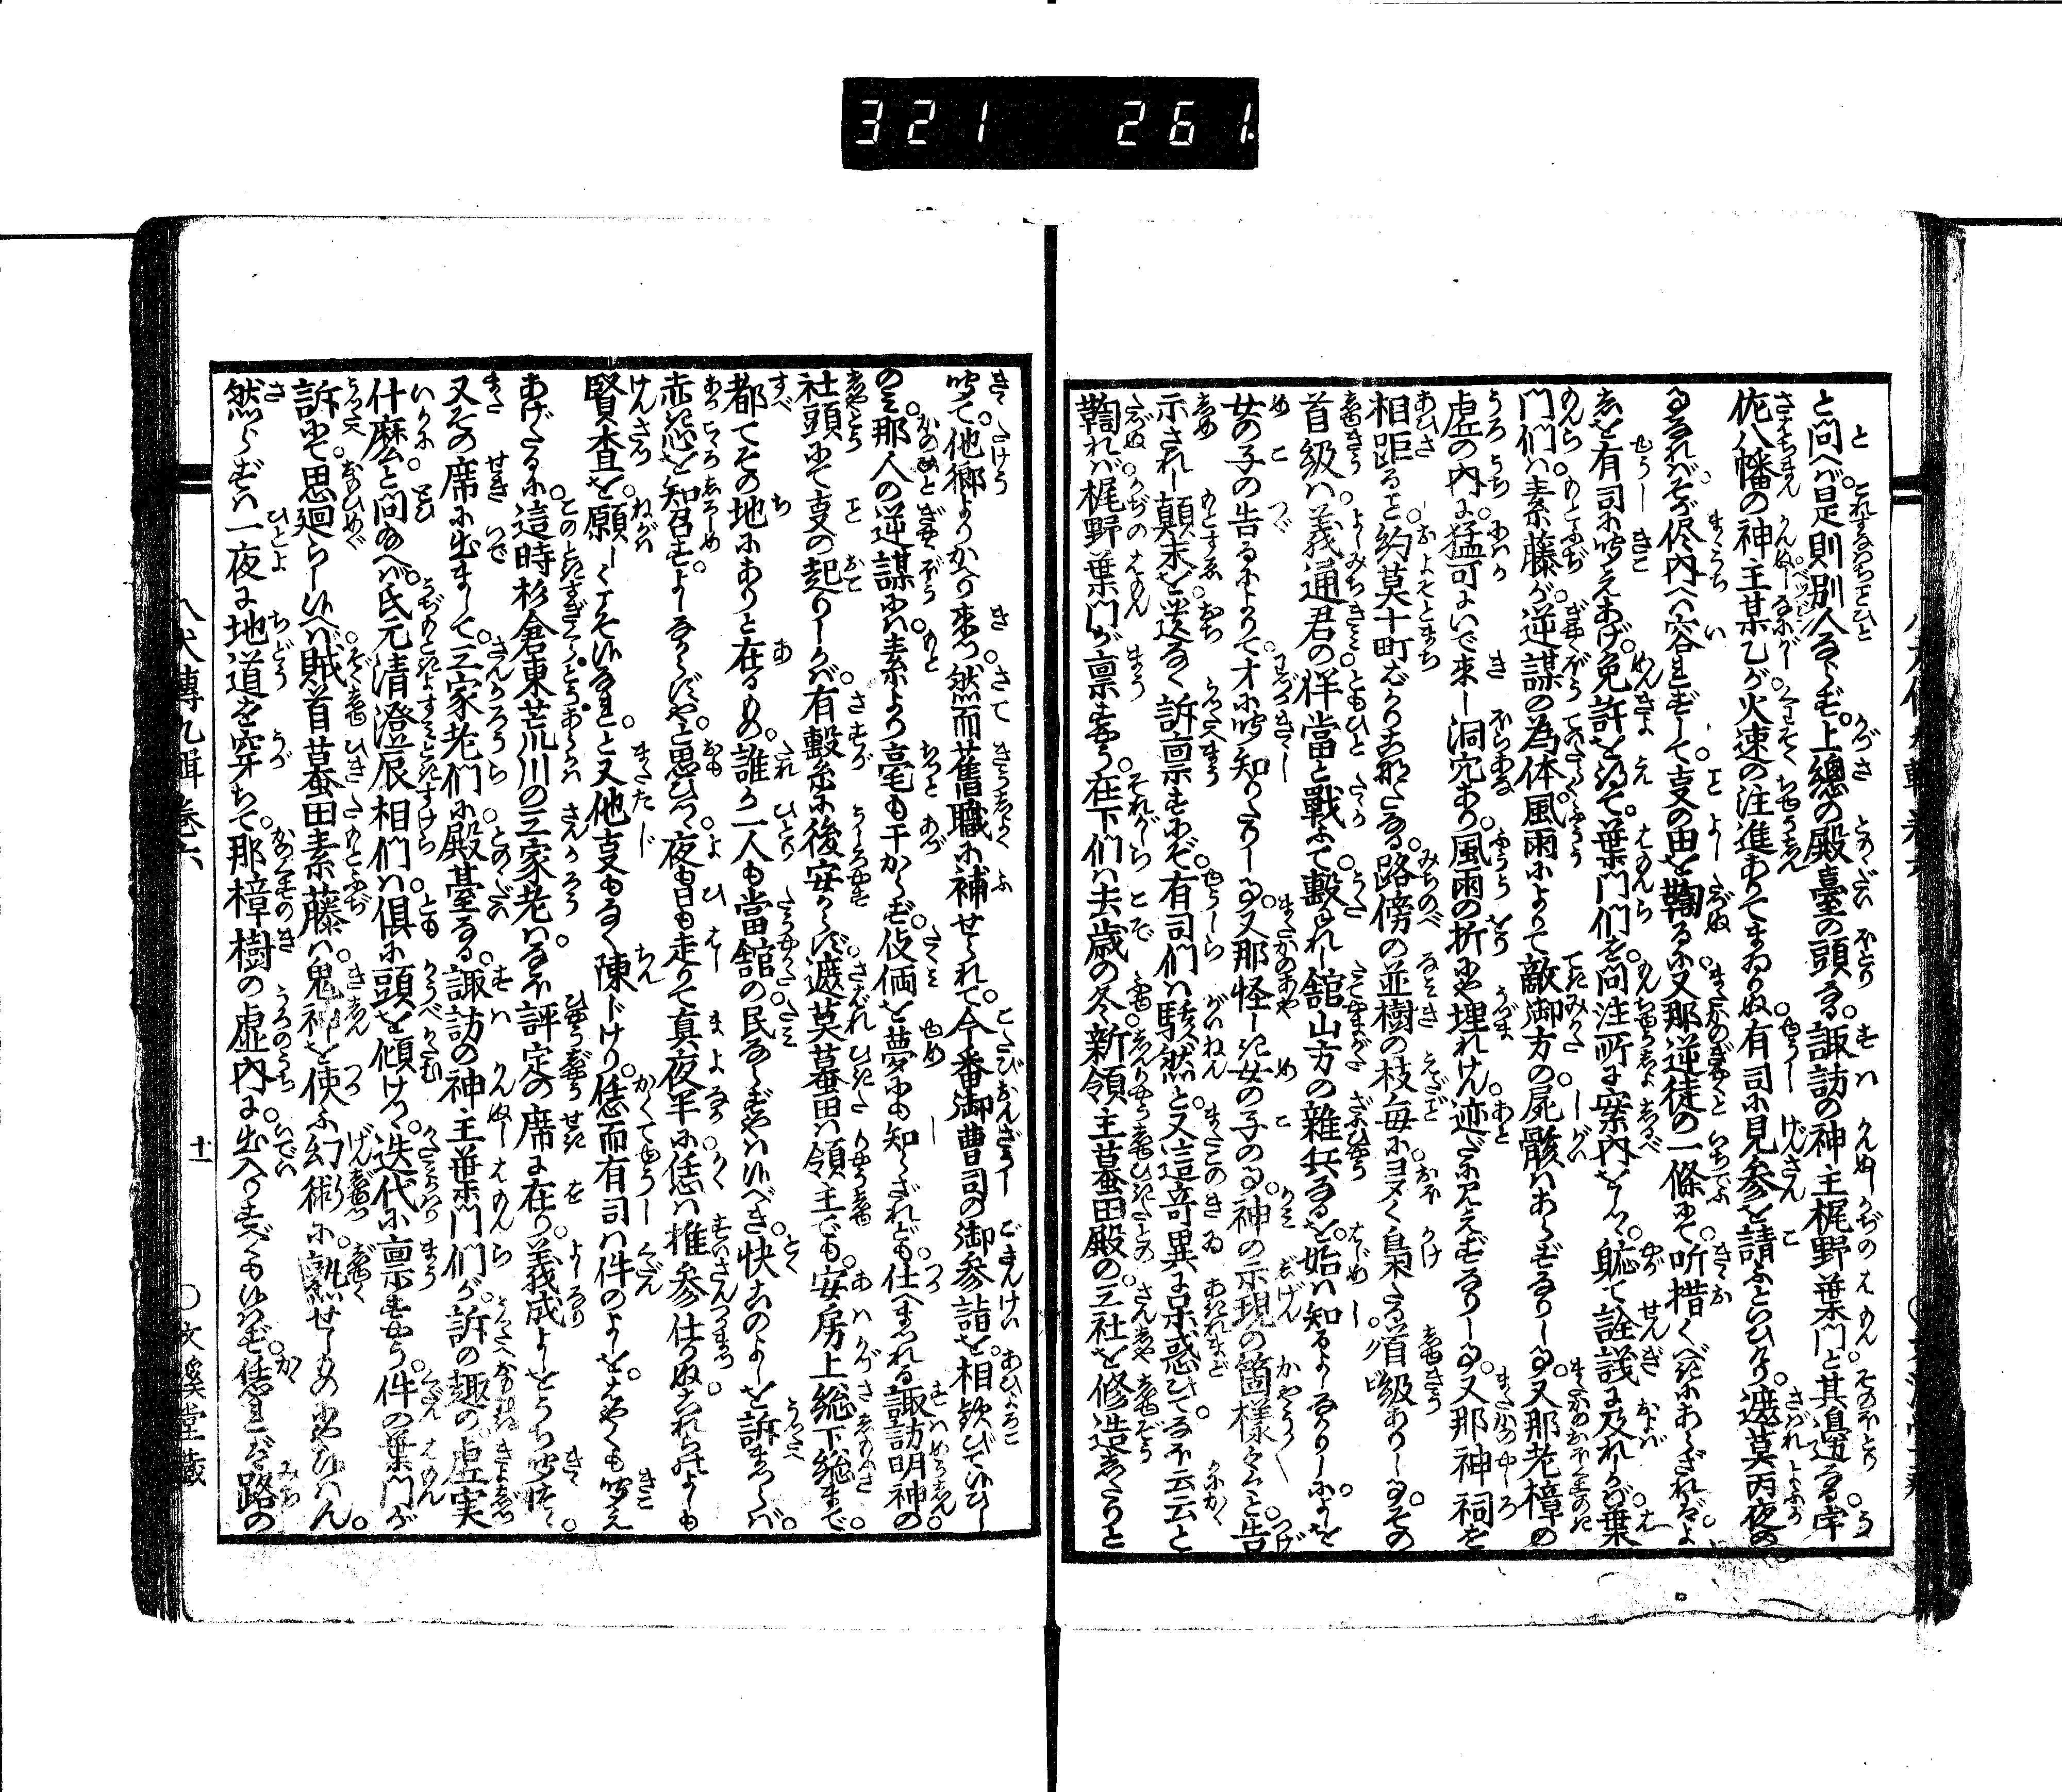 321 261
と問へバ。是則別人ならず。上總の殿臺の頭なる。諏訪の神主梶野葉門と其邊なる宇
佐八幡の神主某乙が火速の注進ありてまゐりぬ。有司に見参を請ふといひけり。遮莫丙夜の
なれバそが侭内へ容れずして。事の由を鞫るに。又那逆徒の一條にて。听措くべきにあらざれバ。よ
しを有司に聞えあげ。免許を得て。葉門們を問注所に案内をしつ。軈て詮議に及れしが。葉
門們ハ素藤が逆謀の為体。風雨によりて敵御方の屍骸ハあらずなりし事。又那老樟の
虚の内に。猛可にいで来し洞穴あり。風雨の折にや埋れけん。迹だに見えずなりし事。又那神祠を
相距ること。約莫十町ばかりこなたなる。路傍の並樹の枝毎に。多く梟たる首級ありし事。その
首級ハ。義通君の伴當と戰ふて。轂れし舘山方の雜兵なるを。始ハ知るよしなかりしに。よを
女の子の告るによりて。才に聞知りたりし事。又那怪しき女の子の事。神の示現の箇様々々と。告
示されし顛末を。送なく訴禀すにぞ。有司們ハ駭然と。又這竒異に呆惑ひてなほ云云と
鞫れバ。梶野葉門が禀すやう。在下們ハ去歳の冬。新領主蟇田殿の。三社を修造したりと
聞て。他郷よりかへり来つ。然而舊職に補せられて。今番御曹司の御参詣を。相歓びてひひし
のミ。那人の逆謀にハ。素より毫も干からず。伎倆を夢にも知らざれども。仕へまつれる諏訪明神の
社頭にて。事の起りしが。有繋に後安からず。遮莫蟇田ハ領主でも。安房上総下総まで。
都てその地にありと在るもの。誰か一人も當舘の。民ならずやハいふべき。快このよしを訴まつらバ。
赤き心を知召すよしならずやと。思ひつゝ夜も日も走りて。真夜半に恁ハ推参仕りぬ。これらのよしも
賢査を。願しくこそ候なれと。又他事もなく陳じけり。恁而有司ハ件のよしを。はやくも聞え
あげたるに。這時杉倉東荒川の三家老ハ。なほ評定の席に在り。義成よしをうち聞て。
又その席に出まして。三家老們に殿臺なる。諏訪の神主葉門們が。訴の趣の。虚実
什麼と問給へバ。氏元清澄辰相們ハ。倶に頭を傾けつ。迭代に禀すやう。件の葉門が
訴にて。思廻らし候へバ。賊首蟇田素藤ハ。鬼神を使ふ幻術に。熟せしものにや候ハん。
然らずハ一夜に地道を穿ちて。那樟樹の虚内に。出入りすべくも候はず。恁れバ路の
八犬傳九輯巻六
十一
○文溪堂藏